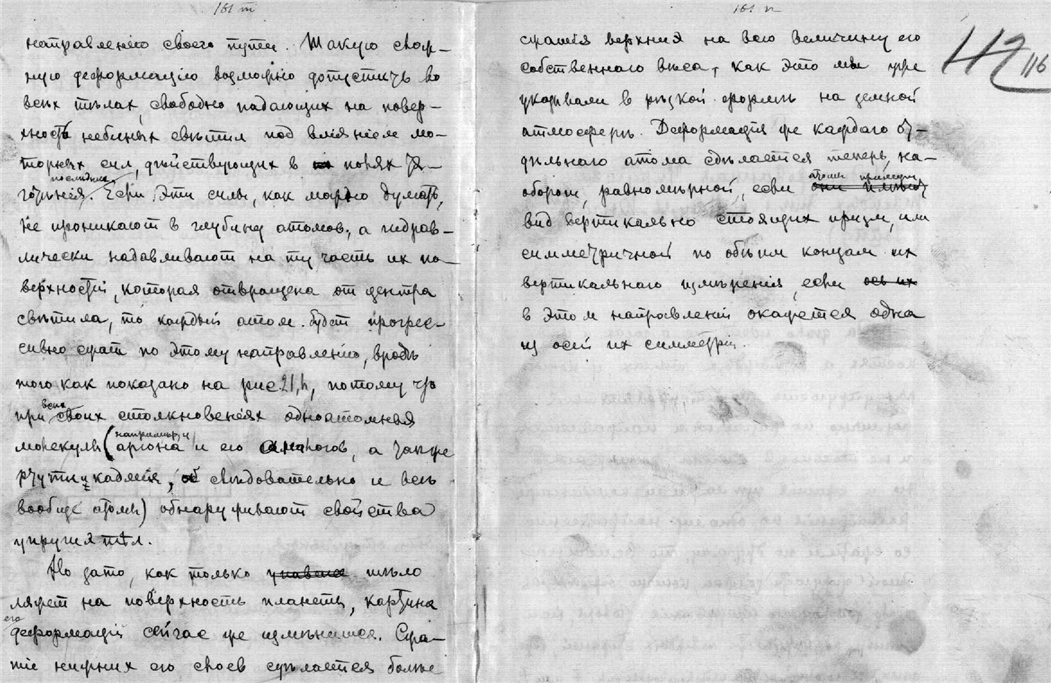 161 m
направленію своего пути. Такую свое-
ную деформацію возможно допустить во
всѣх тѣлах, свободно падающих на повер-
хность небесных свѣтил под вліяніем мо-
торных сил, дѣйствующих в полях тя-
готѣнія последних. Если эти силы, как можно думать,
не проникают в глубину атомов, а гидрав-
лически надавливают на ту часть их по-
верхностей, которая отвращена от центра
свѣтила, то каждый атом будет прогрес-
сивно сжат по этому направленію, вродѣ
того как показано на рис 21, h, потому что
при всех своих столкновеніях одноатомная
молекулы (например аргона и его аналогов, а также
ртути и кадмія, слѣдовательно и всѣ
вообще атомы) обнаруживают свойства
упругих тѣл.
Но зато, как только тѣло
ляжет на поверхность планеты, картина
его деформацій сейчас же измѣнится. Сжа-
тіе нижних его слоев сдѣлается болѣе
161 n
112 116
сжатія верхняя на всю величину его
собственного вѣса, как это мы уже
указывали в рѣзкой формѣ на земной
атмосферѣ. Деформація же каждаго от-
дѣльнаго атома сдѣлается теперь, на-
оборот, равномѣрной, если атомы
вид вертикально стоящих призм, или
симметричной по обѣим концам их
вертикальнаго измѣренія, если
в этом направленіи окажется одна
из осей их симметріи.